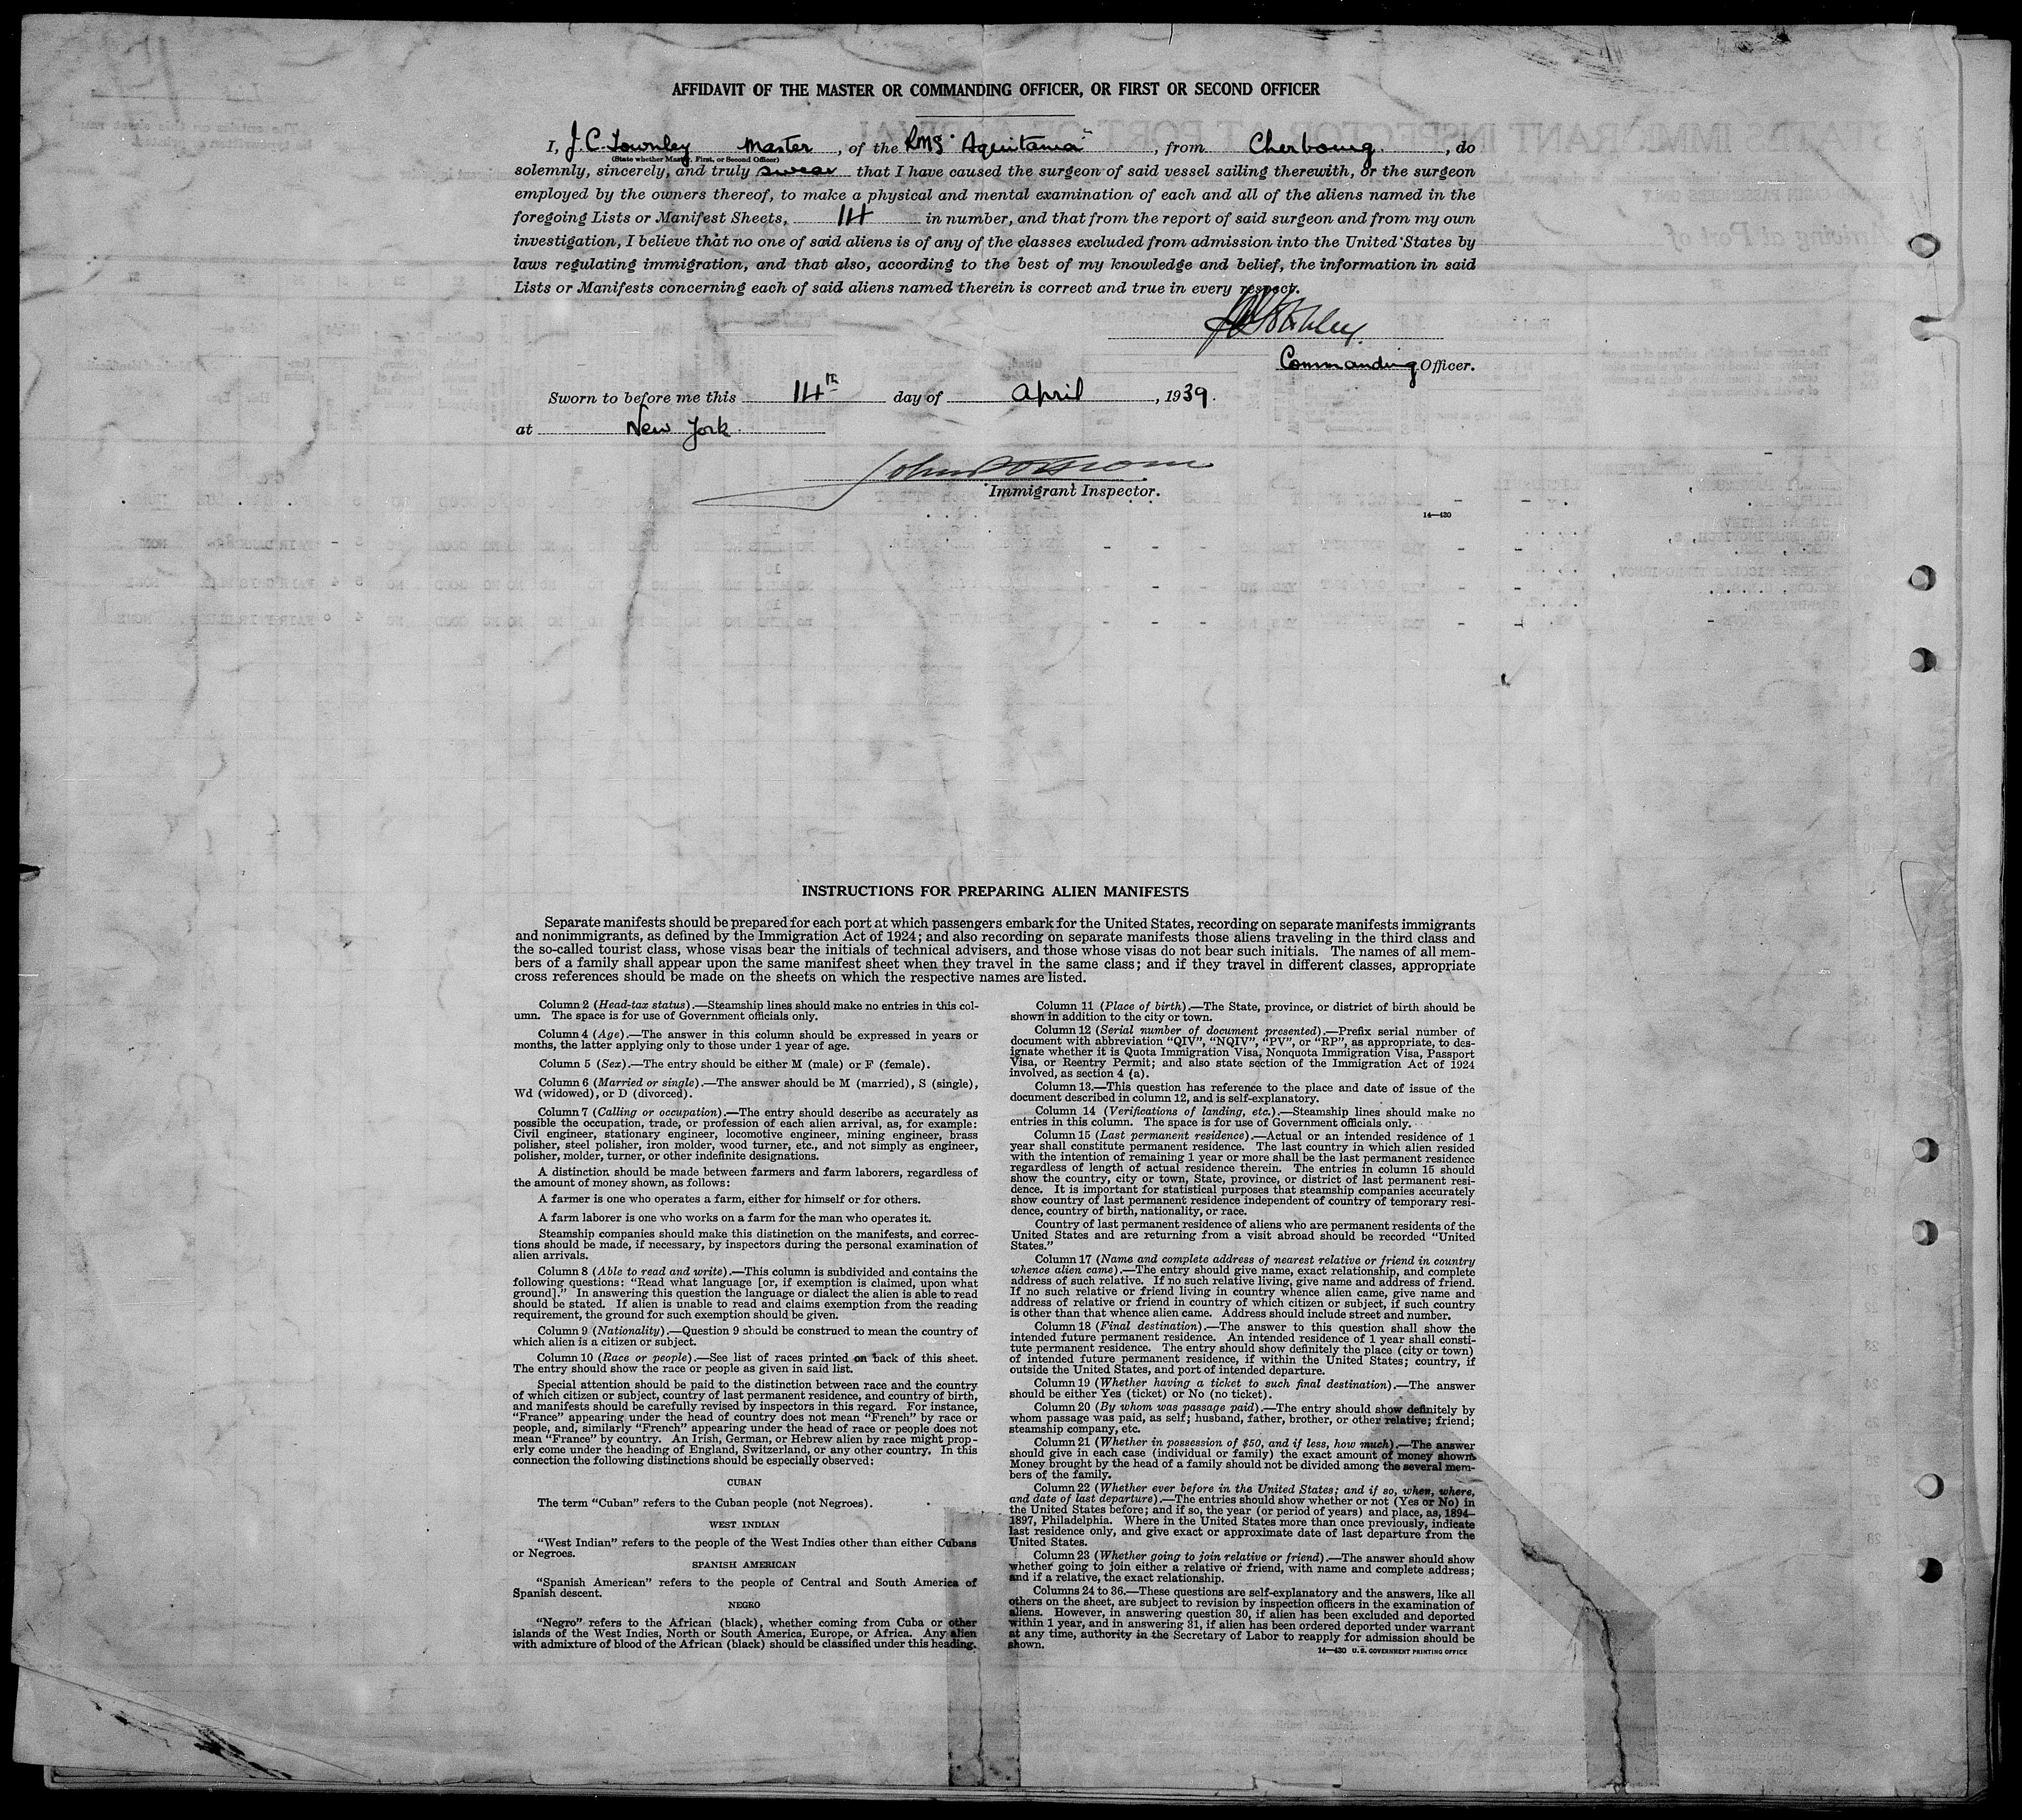 AFFIDAVIT OF THE MASTER OR COMMANDING OFFICER, OR FIRST OR SECOND OFFICER
I, J. C. Townley Master, of the RMS "Aquitania", from Cherbourg, do
(State whether Master, First, or Second Officer)
solemnly, sincerely, and truly swear that I have caused the surgeon of said vessel sailing therewith, or the surgeon
employed by the owners thereof, to make a physical and mental examination of each and all of the aliens named in the
foregoing Lists or Manifest Sheets, 14 in number, and that from the report of said surgeon and from my own
investigation, I believe that no one of said aliens is of any of the classes excluded from admission into the United States by
laws regulating immigration, and that also, according to the best of my knowledge and belief, the information in said
Lists or Manifests concerning each of said aliens named therein is correct and true in every respect.
Commanding Officer.
Sworn to before me this 14th day of April, 1939.
at New York.
Immigrant Inspector.
14—430
INSTRUCTIONS FOR PREPARING ALIEN MANIFESTS
Separate manifests should be prepared for each port at which passengers embark for the United States, recording on separate manifests immigrants
and nonimmigrants, as defined by the Immigration Act of 1924; and also recording on separate manifests those aliens traveling in the third class and
the so-called tourist class, whose visas bear the initials of technical advisers, and those whose visas do not bear such initials. The names of all mem-
bers of a family shall appear upon the same manifest sheet when they travel in the same class; and if they travel in different classes, appropriate
cross references should be made on the sheets on which the respective names are listed.
Column 2 (Head-tax status).—Steamship lines should make no entries in this col-
umn. The space is for use of Government officials only.
Column 4 (Age).—The answer in this column should be expressed in years or
months, the latter applying only to those under 1 year of age.
Column 5 (Sex).—The entry should be either M (male) or F (female).
Column 6 (Married or single).—The answer should be M (married), S (single),
Wd (widowed), or D (divorced).
Column 7 (Calling or occupation).—The entry should describe as accurately as
possible the occupation, trade, or profession of each alien arrival, as, for example:
Civil engineer, stationary engineer, locomotive engineer, mining engineer, brass
polisher, steel polisher, iron molder, wood turner, etc., and not simply as engineer,
polisher, molder, turner, or other indefinite designations.
A distinction should be made between farmers and farm laborers, regardless of
the amount of money shown, as follows:
A farmer is one who operates a farm, either for himself or for others.
A farm laborer is one who works on a farm for the man who operates it.
Steamship companies should make this distinction on the manifests, and correc-
tions should be made, if necessary, by inspectors during the personal examination of
alien arrivals.
Column 8 (Able to read and write).—This column is subdivided and contains the
following questions: "Read what language [or, if exemption is claimed, upon what
ground]." In answering this question the language or dialect the alien is able to read
should be stated. If alien is unable to read and claims exemption from the reading
requirement, the ground for such exemption should be given.
Column 9 (Nationality).—Question 9 should be construed to mean the country of
which alien is a citizen or subject.
Column 10 (Race or people).—See list of races printed on back of this sheet.
The entry should show the race or people as given in said list.
Special attention should be paid to the distinction between race and the country
of which citizen or subject, country of last permanent residence, and country of birth,
and manifests should be carefully revised by inspectors in this regard. For instance,
"France" appearing under the head of country does not mean "French" by race or
people, and, similarly "French" appearing under the head of race or people does not
mean "France" by country. An Irish, German, or Hebrew alien by race might prop-
erly come under the heading of England, Switzerland, or any other country. In this
connection the following distinctions should be especially observed:
CUBAN
The term "Cuban" refers to the Cuban people (not Negroes).
WEST INDIAN
"West Indian" refers to the people of the West Indies other than either Cubans
or Negroes.
SPANISH AMERICAN
"Spanish American" refers to the people of Central and South America of
Spanish descent.
NEGRO
"Negro" refers to the African (black), whether coming from Cuba or other
islands of the West Indies, North or South America, Europe, or Africa. Any alien
with admixture of blood of the African (black) should be classified under this heading.
Column 11 (Place of birth).—The State, province, or district of birth should be
shown in addition to the city or town.
Column 12 (Serial number of document presented).—Prefix serial number of
document with abbreviation "QIV", "NQIV", "PV", or "RP", as appropriate, to des-
ignate whether it is Quota Immigration Visa, Nonquota Immigration Visa, Passport
Visa, or Reentry Permit; and also state section of the Immigration Act of 1924
involved, as section 4 (a).
Column 13.—This question has reference to the place and date of issue of the
document described in column 12, and is self-explanatory.
Column 14 (Verifications of landing, etc.).—Steamship lines should make no
entries in this column. The space is for use of Government officials only.
Column 15 (Last permanent residence).—Actual or an intended residence of 1
year shall constitute permanent residence. The last country in which alien resided
with the intention of remaining 1 year or more shall be the last permanent residence
regardless of length of actual residence therein. The entries in column 15 should
show the country, city or town, State, province, or district of last permanent resi-
dence. It is important for statistical purposes that steamship companies accurately
show country of last permanent residence independent of country of temporary resi-
dence, country of birth, nationality, or race.
Country of last permanent residence of aliens who are permanent residents of the
United States and are returning from a visit abroad should be recorded "United
States."
Column 17 (Name and complete address of nearest relative or friend in country
whence alien came).—The entry should give name, exact relationship, and complete
address of such relative. If no such relative living, give name and address of friend.
If no such relative or friend living in country whence alien came, give name and
address of relative or friend in country of which citizen or subject, if such country
is other than that whence alien came. Address should include street and number.
Column 18 (Final destination).—The answer to this question shall show the
intended future permanent residence. An intended residence of 1 year shall consti-
tute permanent residence. The entry should show definitely the place (city or town)
of intended future permanent residence, if within the United States; country, if
outside the United States, and port of intended departure.
Column 19 (Whether having a ticket to such final destination).—The answer
should be either Yes (ticket) or No (no ticket).
Column 20 (By whom was passage paid).—The entry should show definitely by
whom passage was paid, as self; husband, father, brother, or other relative; friend;
steamship company, etc.
Column 21 (Whether in possession of $50, and if less, how much).—The answer
should give in each case (individual or family) the exact amount of money shown.
Money brought by the head of a family should not be divided among the several mem-
bers of the family.
Column 22 (Whether ever before in the United States; and if so, when, where,
and date of last departure).—The entries should show whether or not (Yes or No) in
the United States before; and if so, the year (or period of years) and place, as, 1894–
1897, Philadelphia. Where in the United States more than once previously, indicate
last residence only, and give exact or approximate date of last departure from the
United States.
Column 23 (Whether going to join relative or friend).—The answer should show
whether going to join either a relative or friend, with name and complete address;
and if a relative, the exact relationship.
Columns 24 to 36.—These questions are self-explanatory and the answers, like all
others on the sheet, are subject to revision by inspection officers in the examination of
aliens. However, in answering question 30, if alien has been excluded and deported
within 1 year, and in answering 31, if alien has been ordered deported under warrant
at any time, authority in the Secretary of Labor to reapply for admission should be
shown.
14—430 U. S. GOVERNMENT PRINTING OFFICE